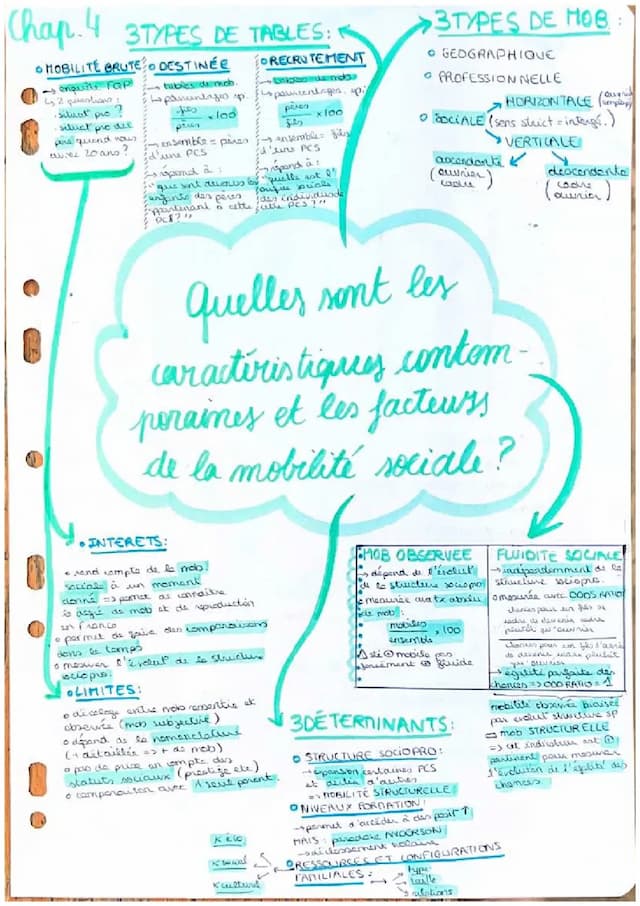 Chap. 4
3TYPES DE TABLES:
MOBILITÉ BRUTE
→ enquête FQP
↳ 2 questions :
situat° pro ?
situat° pro de
père quand vous
aviez 20 ans ?
DESTINÉE
→ tables de mob.
↳ pourcentages, sp.
fils
pères
x100
→ ensemble = pères
d'une PCS
→ répond à :
que sont devenus les
enfants des pères
appartenant à cette
PCS ?"
RECRUTEMENT
→ tables de mob
↳ pourcentages, sp.:
pères
fils
x100
→ ensemble = fils
d'une PCS
→ répond à :
"quelle est l'
origine sociale
des individus de
cette PCS ?"
3TYPES DE MOB :
GEOGRAPHIQUE
PROFESSIONNELLE
SOCIALE (sens strict = intergé.)
HORIZONTALE
VERTICALE
ascendante
(ouvrier
cadre)
descendante
(cadre
ouvrier)
Quelles sont les
caractéristiques contem-
poraines et les facteurs
de la mobilité sociale ?
INTERETS:
→ rend compte de la mob
sociale à un moment
donné => permet de connaître
le degré de mob et de reproduction
en France
permet de faire des comparaisons
dans le temps
mesurer l'évolut° de la structure
sociopro.
LIMITES:
décalage entre mob ressentie et
observée (mob subjective)
dépend de la nomenclature
(+ détaillée => + de mob)
pas de prise en compte des
statuts sociaux (prestige etc)
comparaison avec 1 seul parent.
MOB OBSERVEE
→ dépend de l'évolut°
de la structure sociopro
mesurée aux tx absolu
de mob :
mobiles
ensemble
x100
⚠ si ⊕ mobile pas
forcément ⊕ fluide
FLUIDITE SOCIALE
→ indépendamment de la
structure sociopro.
mesurée avec ODDS RATIO
chances pour un fils de
cadre de devenir cadre
plutôt qu'ouvrier
chances pour un fils d'ouvrier
de devenir cadre plutôt
qu'ouvrier
→ égalité parfaite des
chances => ODD RATIO = 1
mobilité observée biaisée
par évolut° structure sp
= mob STRUCTURELLE
=> cet indicateur est ⊕
pertinent pour mesurer
l'évolution de l'égalité des
chances.
3DÉTERMINANTS:
STRUCTURE SOCIOPRO:
→ expansion certaines PCS
et déclin d'autres
=> MOBILITÉ STRUCTURELLE
NIVEAUX FORMATION:
→ permet d'accéder à des posit° ↑
MAIS : paradoxe ANDERSON
→ déclassement scolaire
RESSOURCES ET CONFIGURATIONS
FAMILIALES:
K éco
K social
K culturel
type
taille
relations